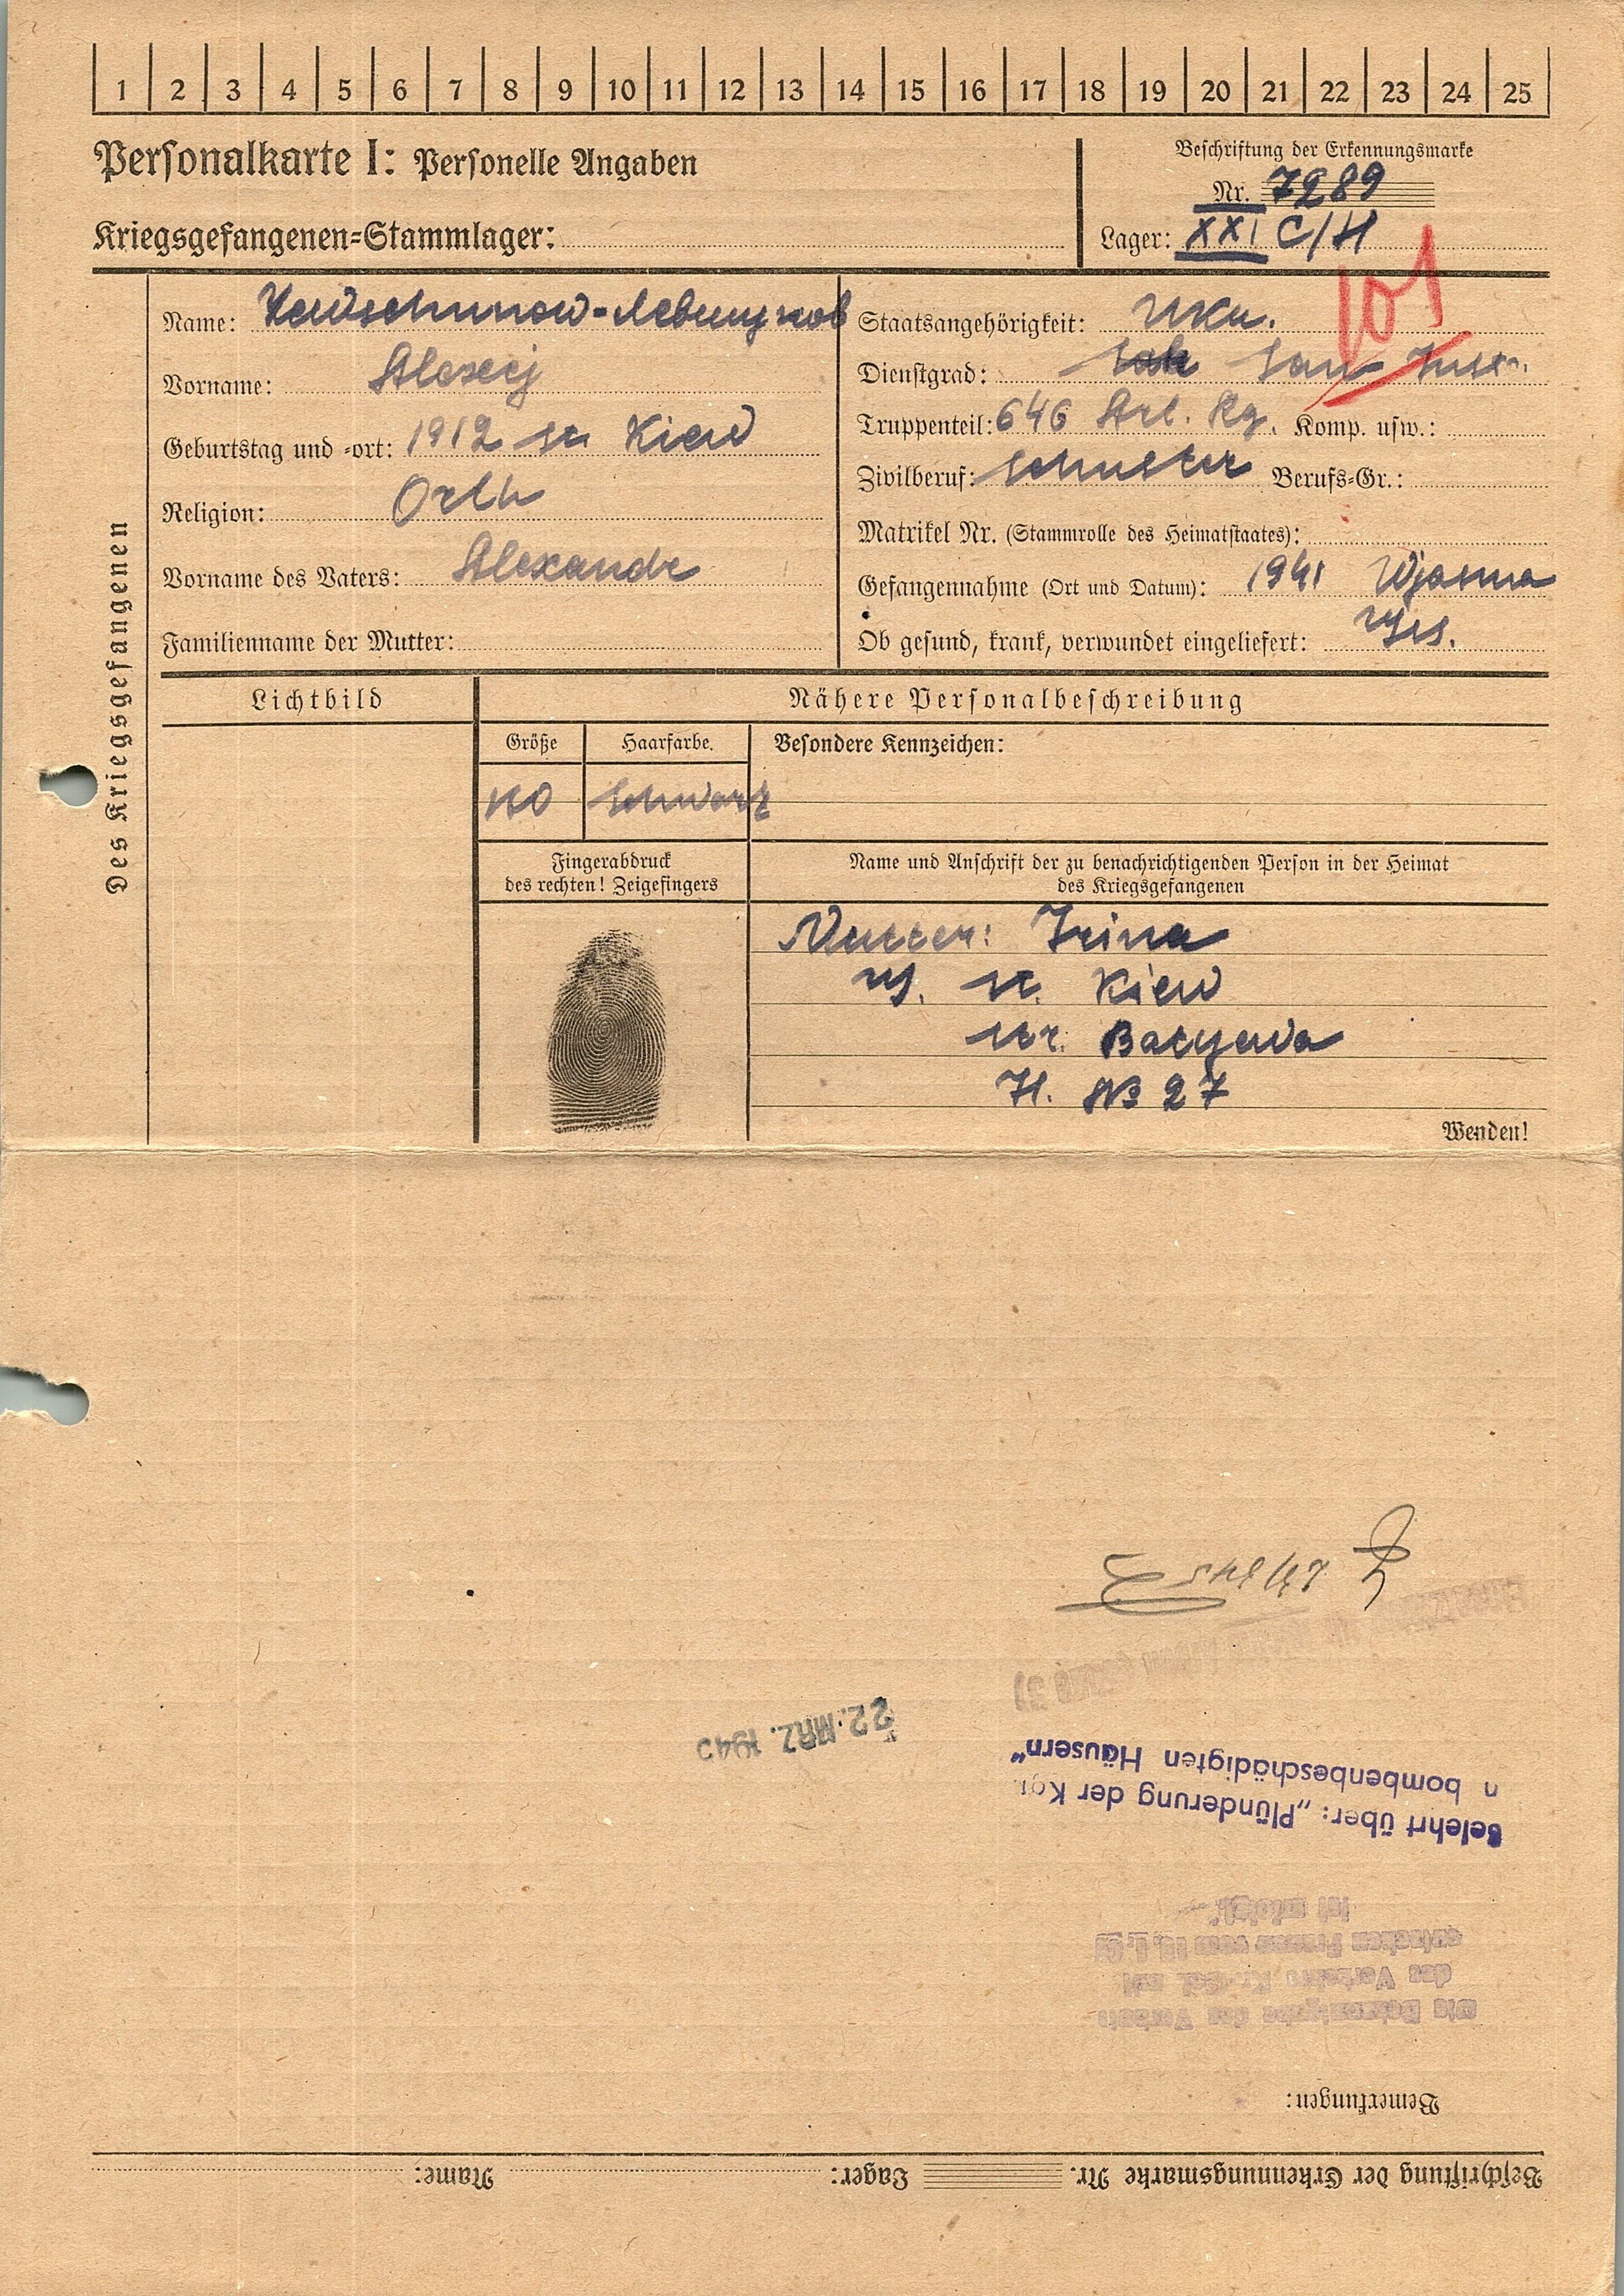 1 2 3 4 5 6 7 8 9 10 11 12 13 14 15 16 17 18 19 20 21 22 23 24 25
Personalkarte I: Personelle Angaben
Kriegsgefangenen-Stammlager:
Beschriftung der Erkennungsmarke
Nr. 7289
Lager: XXI C/H
101
Des Kriegsgefangenen
Name:
Vorname: Alexej
Geburtstag und -ort: 1912 st Kiew
Religion: Orth
Vorname des Vaters: Alexandr
Familienname der Mutter:
Staatsangehörigkeit: Ukr.
Dienstgrad: San
Truppenteil: 646 Art. Rg. Komp. usw.:
Zivilberuf: Schuster Berufs-Gr.:
Matrikel Nr. (Stammrolle des Heimatstaates):
Gefangennahme (Ort und Datum): 1941 Wjasma
Ob gesund, krank, verwundet eingeliefert: Ges.
Lichtbild
Nähere Personalbeschreibung
Größe
Haarfarbe.
Besondere Kennzeichen:
Schwarz
Fingerabdruck
des rechten! Zeigefingers
Name und Anschrift der zu benachrichtigenden Person in der Heimat
des Kriegsgefangenen
Mutter: Irina
st. Kiew
str. Batyewa
H. № 27
Wenden!
Beschriftung der Erkennungsmarke Nr. Lager: Name:
Bemerkungen:
Belehrt über: „Plünderung der Kgf.
n bombenbeschädigten Häusern“
22. MRZ. 1945